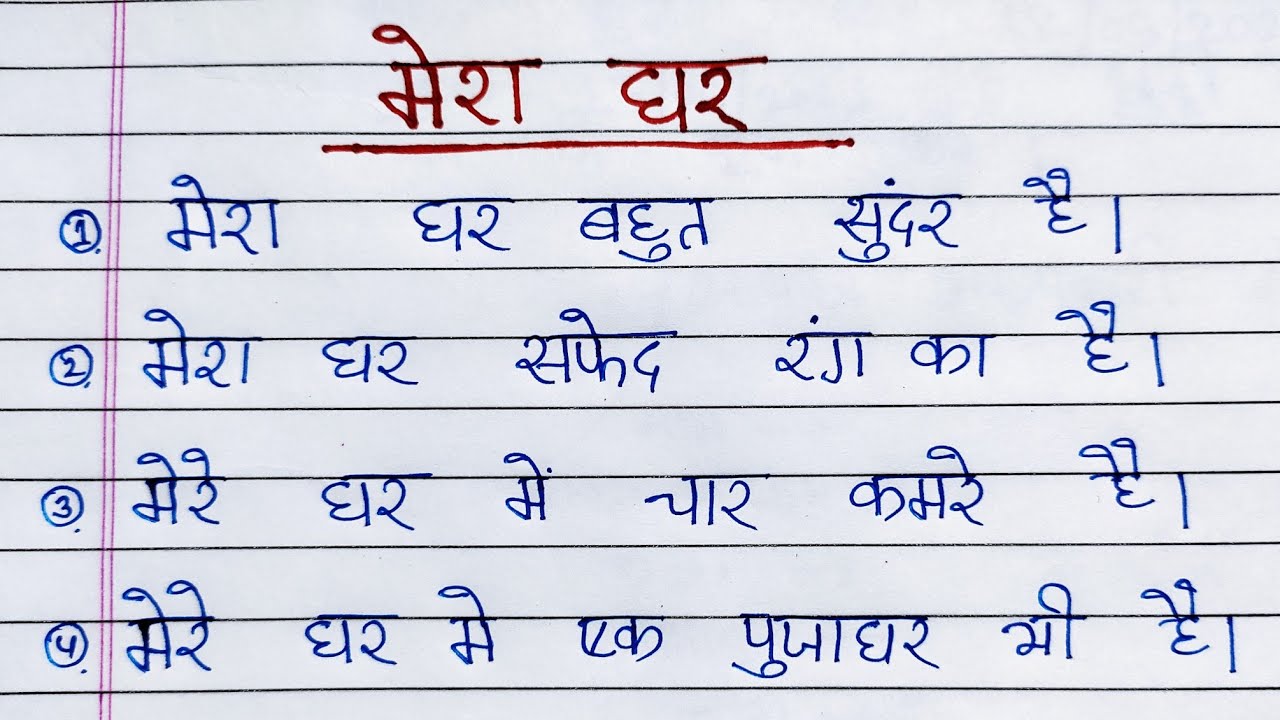 मेरा घर
①. मेरा घर बहुत सुंदर है।
②. मेरा घर सफेद रंग का है।
③. मेरे घर में चार कमरे है।
④. मेरे घर मे एक पुजाघर भी है।